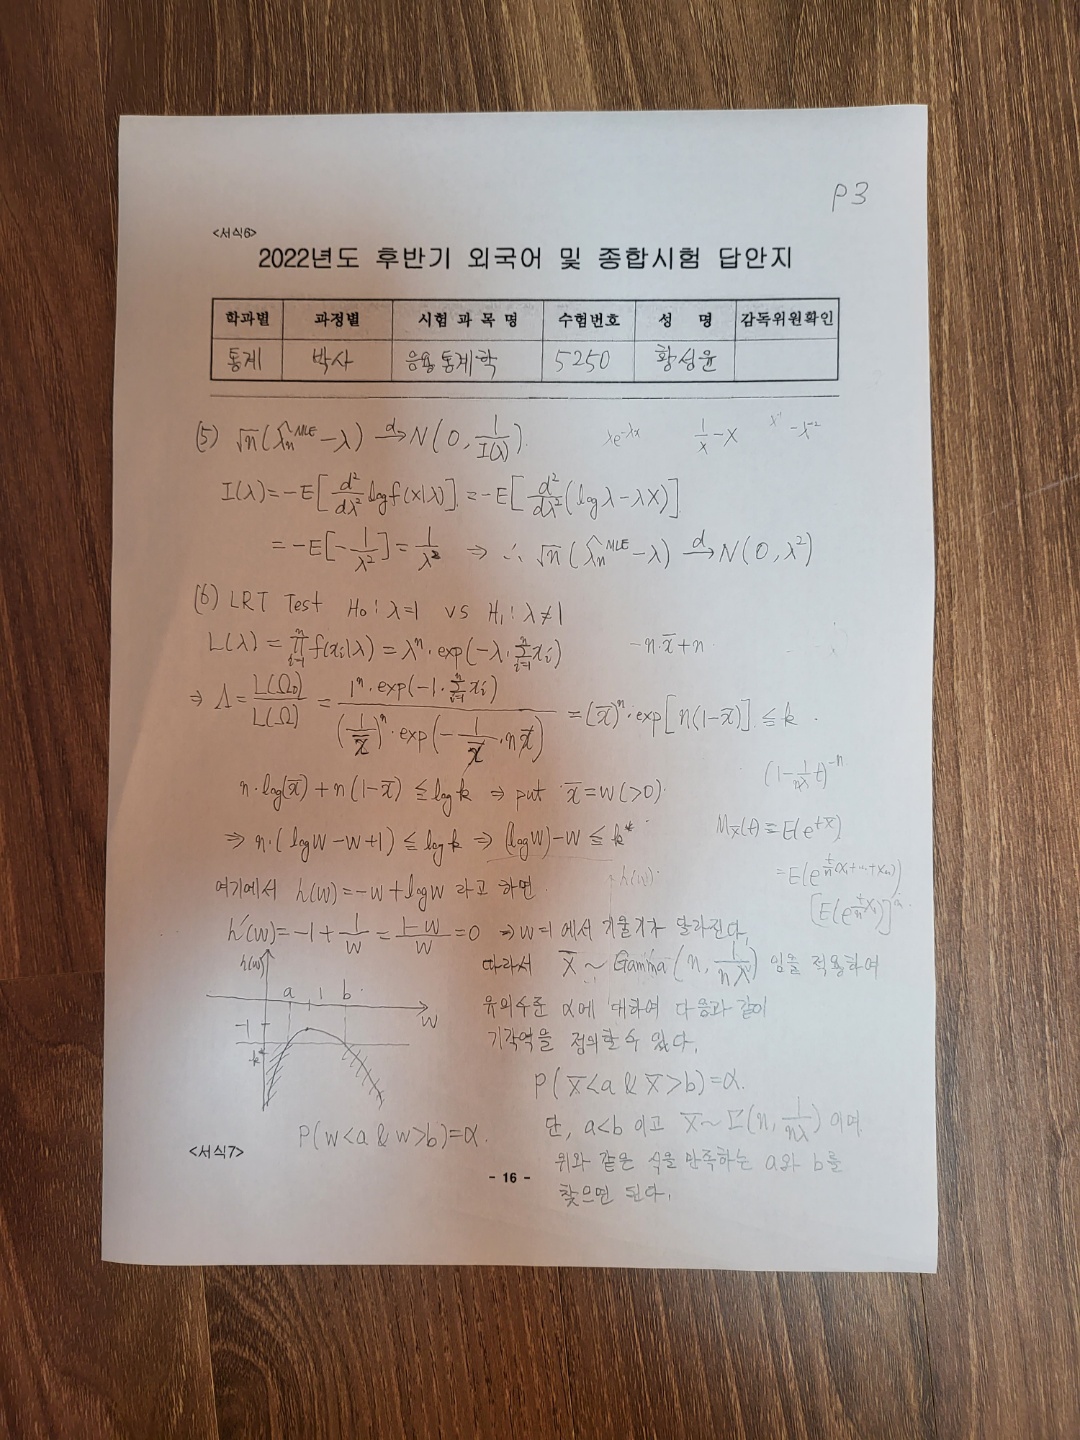 P3
<서식6>
2022년도 후반기 외국어 및 종합시험 답안지
학과별 과정별 시험 과목명 수험번호 성 명 감독위원확인
통계 박사 응용통계학 5250 황성윤
(5) √n(λ̂ₙᴹᴸᴱ-λ) →ᵈ N(0, 1/I(λ)).
λe^{-λx} 1/λ-x λ⁻¹ -λ⁻²
I(λ)=-E[d²/dλ² log f(x|λ)]=-E[d²/dλ²(log λ-λX)]
=-E[-1/λ²]=1/λ² ⇒ ∴ √n(λ̂ₙᴹᴸᴱ-λ) →ᵈ N(0, λ²)
(6) LRT Test H₀: λ=1 vs H₁: λ≠1
L(λ) = ∏_{i=1}^{n} f(xᵢ|λ) = λⁿ·exp(-λ·∑_{i=1}^{n} xᵢ)
-n·x̄+n
⇒ Λ = L(Ω₀)/L(Ω) = 1ⁿ·exp(-1·∑_{i=1}^{n} xᵢ) / (1/x̄)ⁿ·exp(-1/x̄·nx̄) = (x̄)ⁿ·exp[n(1-x̄)] ≤ k.
n·log(x̄)+n(1-x̄) ≤ log k ⇒ put x̄=w(>0).
(1-1/nλ t)^{-n}
⇒ n·(log w-w+1) ≤ log k ⇒ (log w)-w ≤ k*
M_X̄(t)=E(e^{tX̄})
=E(e^{t/n(X₁+…+Xₙ)})
[E(e^{t/n X₁})]ⁿ
여기에서 h(w)=-w+log w 라고 하면
h(w)
h'(w)=-1+1/w=(1-w)/w=0 ⇒ w=1 에서 기울기가 달라진다.
따라서 X̄ ~ Gamma(n, 1/nλ) 임을 적용하여
유의수준 α에 대하여 다음과 같이
기각역을 정의할 수 있다.
P(X̄<a & X̄>b)=α.
단, a<b 이고 X̄~Γ(n, 1/nλ) 이며
위와 같은 식을 만족하는 a와 b를
찾으면 된다.
h(w)
a 1 b
w
-1
k*
P(w<a & w>b)=α.
<서식7>
- 16 -